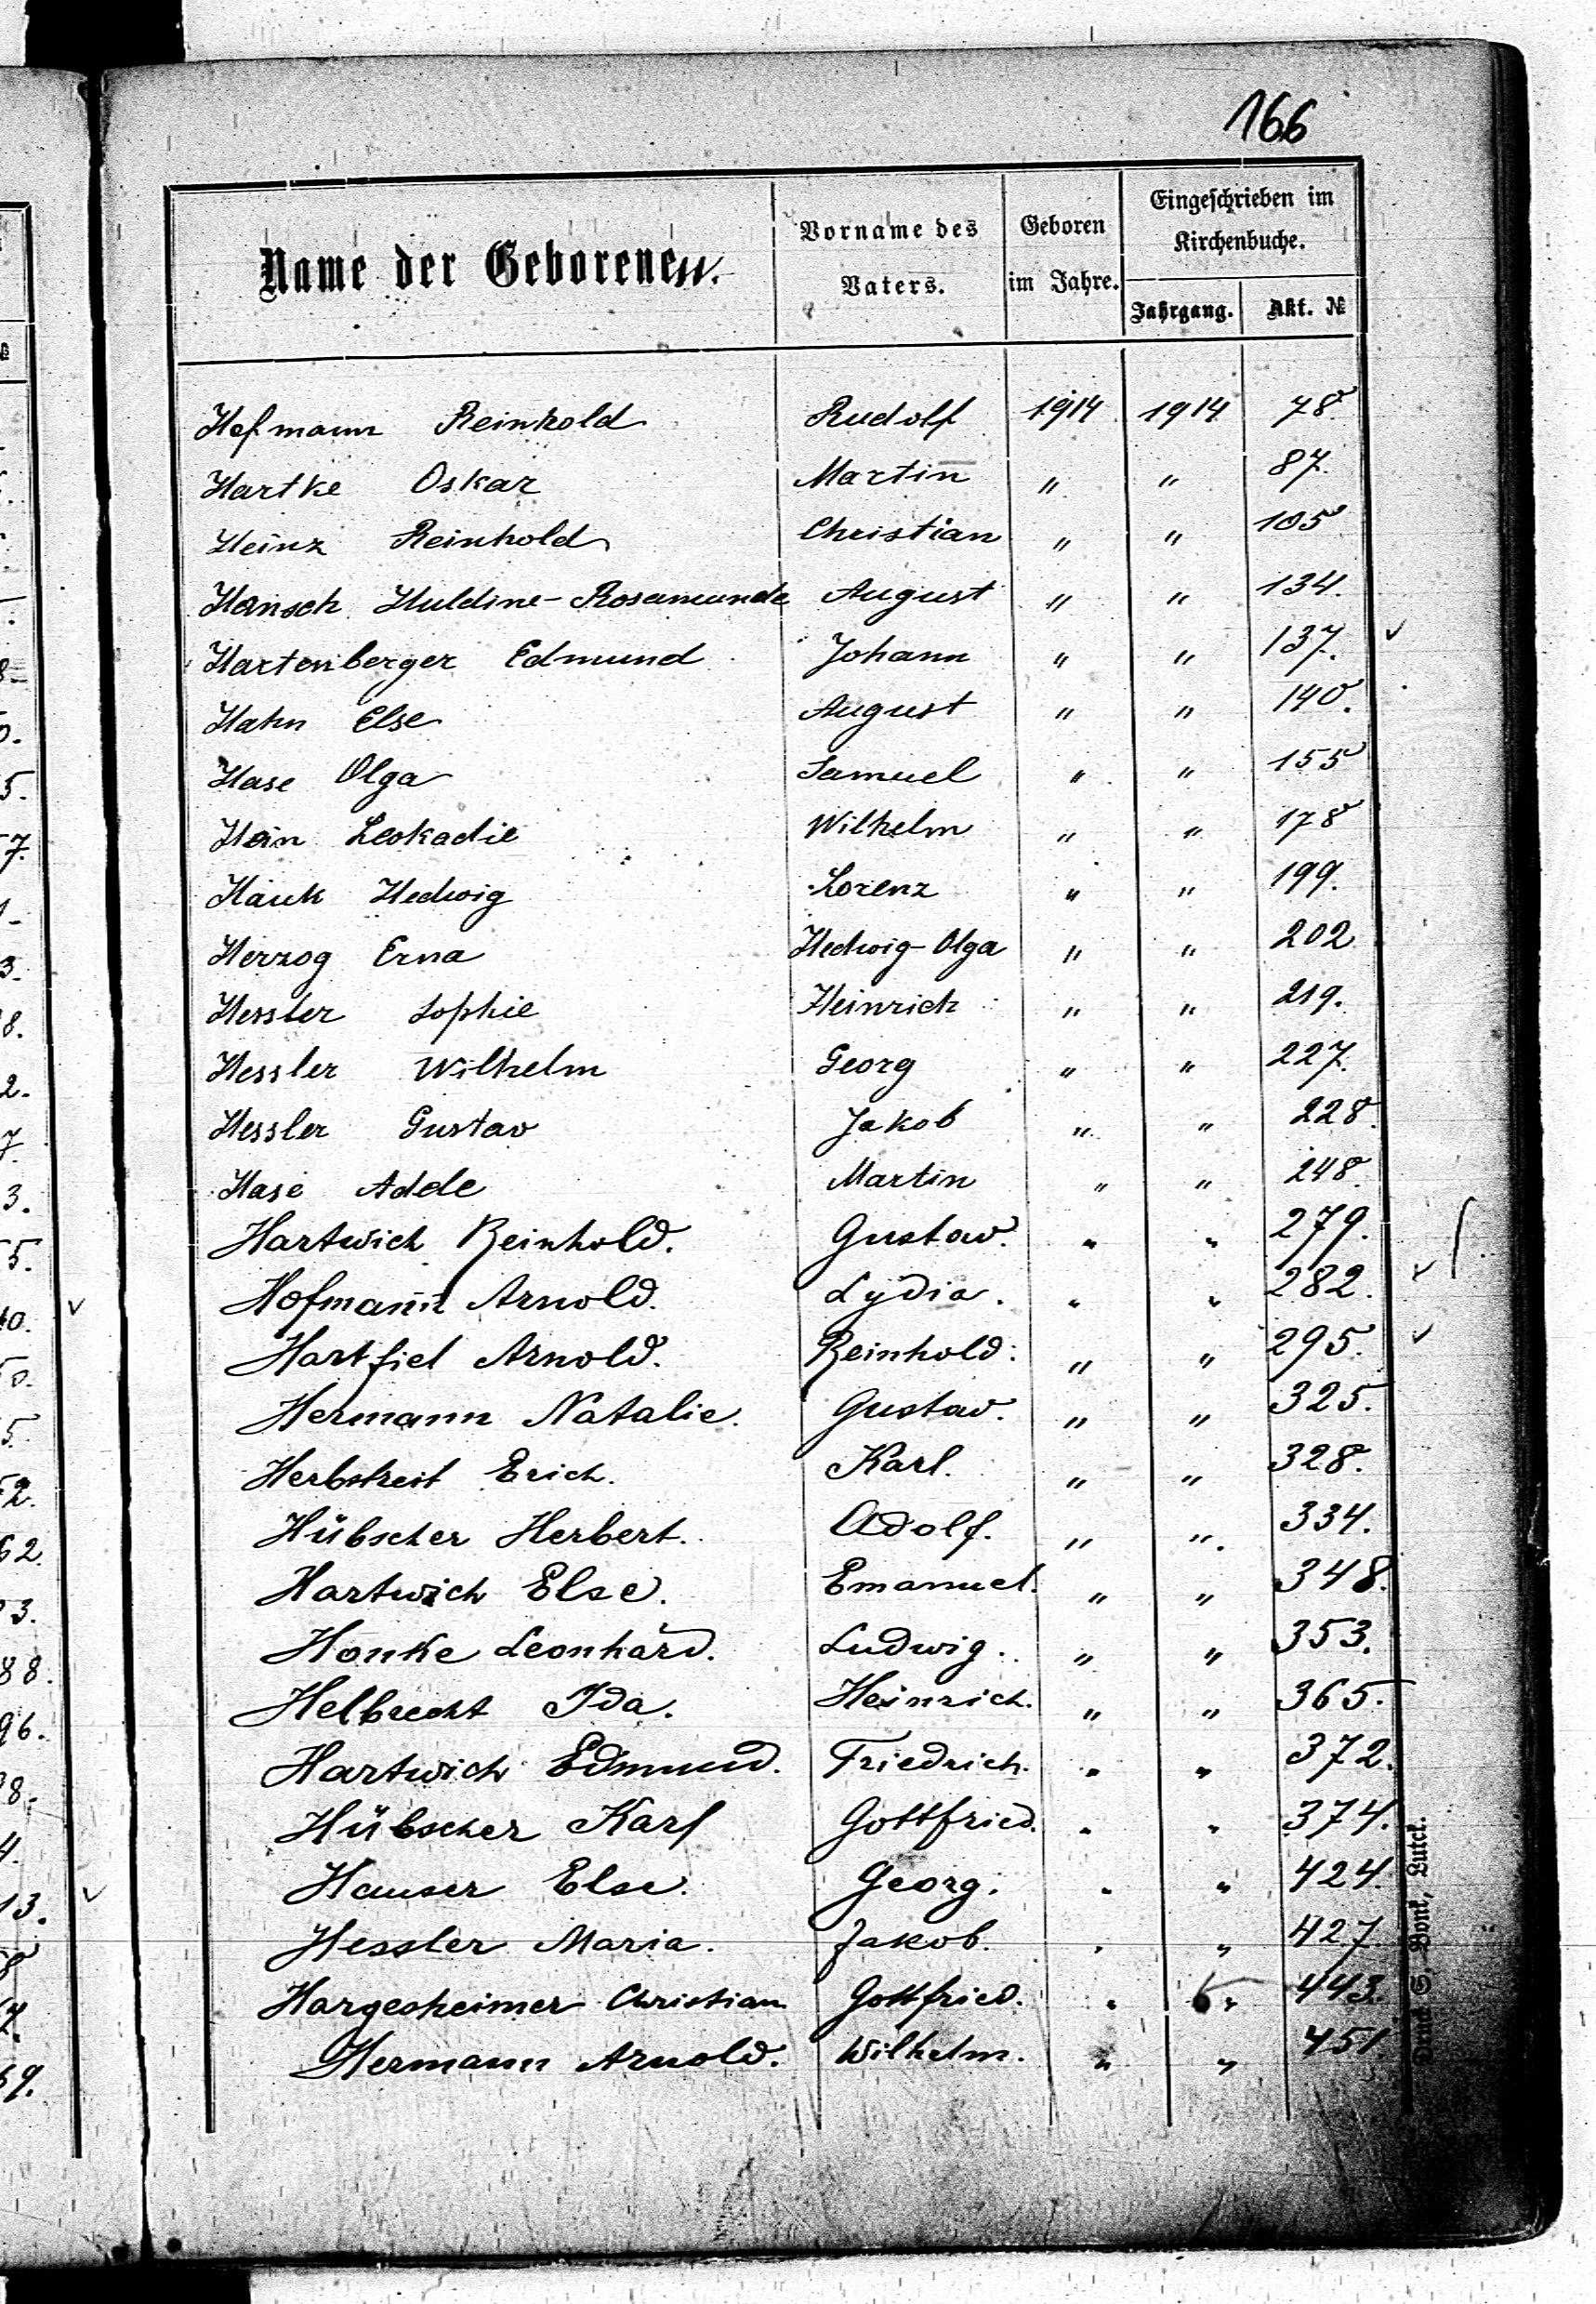 166
Name der Geborenen.
Vorname des Vaters.
Geboren im Jahre.
Eingeschrieben im Kirchenbuche.
Jahrgang.
Akt. №
Hofmann Reinhold Rudolf 1914 1914 78
Hartke Oskar Martin " " 87.
Heinz Reinhold Christian " " 105
Hänsch Huldine-Rosamunde August " " 134.
Hartenberger Edmund Johann " " 137. ✓
Hahn Else August " " 140.
Hase Olga Samuel " " 155
Hein Leokadie Wilhelm " " 178
Hauk Hedwig Lorenz " " 199.
Herzog Erna Hedwig-Olga " " 202
Hessler Sophie Heinrich " " 219.
Hessler Wilhelm Georg " " 227.
Hessler Gustav Jakob " " 228.
Hase Adele Martin " " 248.
Hartwich Reinhold. Gustav. " " 279.
Hofmann Arnold. Lydia. " " 282. ✓
Hartfiel Arnold. Reinhold. " " 295. ✓
Hermann Natalie. Gustav. " " 325.
Herbstreit Erich. Karl. " " 328.
Hübscher Herbert. Adolf. " " 334.
Hartwich Else. Emanuel. " " 348.
Honke Leonhard. Ludwig. " " 353.
Helbrecht Ida. Heinrich. " " 365.
Hartwich Edmund. Friedrich. " " 372.
Hübscher Karl Gottfried. " " 374.
Hauser Else. Georg. " " 424.
Hessler Maria. Jakob. " " 427.
Hargesheimer Christian Gottfried. " " 443.
Hermann Arnold. Wilhelm. " " 451.
Druck S. Bonk, Lutck.